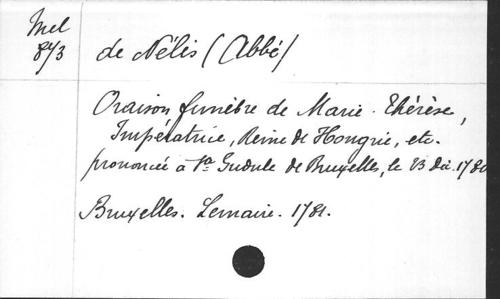 Mel
84/3
de Nélis (Abbé)
Oraison funèbre de Marie-Thérèse,
Impératrice, Reine de Hongrie, etc.
prononcée à Ste Gudule de Bruxelles, le 23 Déc. 1780
Bruxelles. Lemaire. 1781.